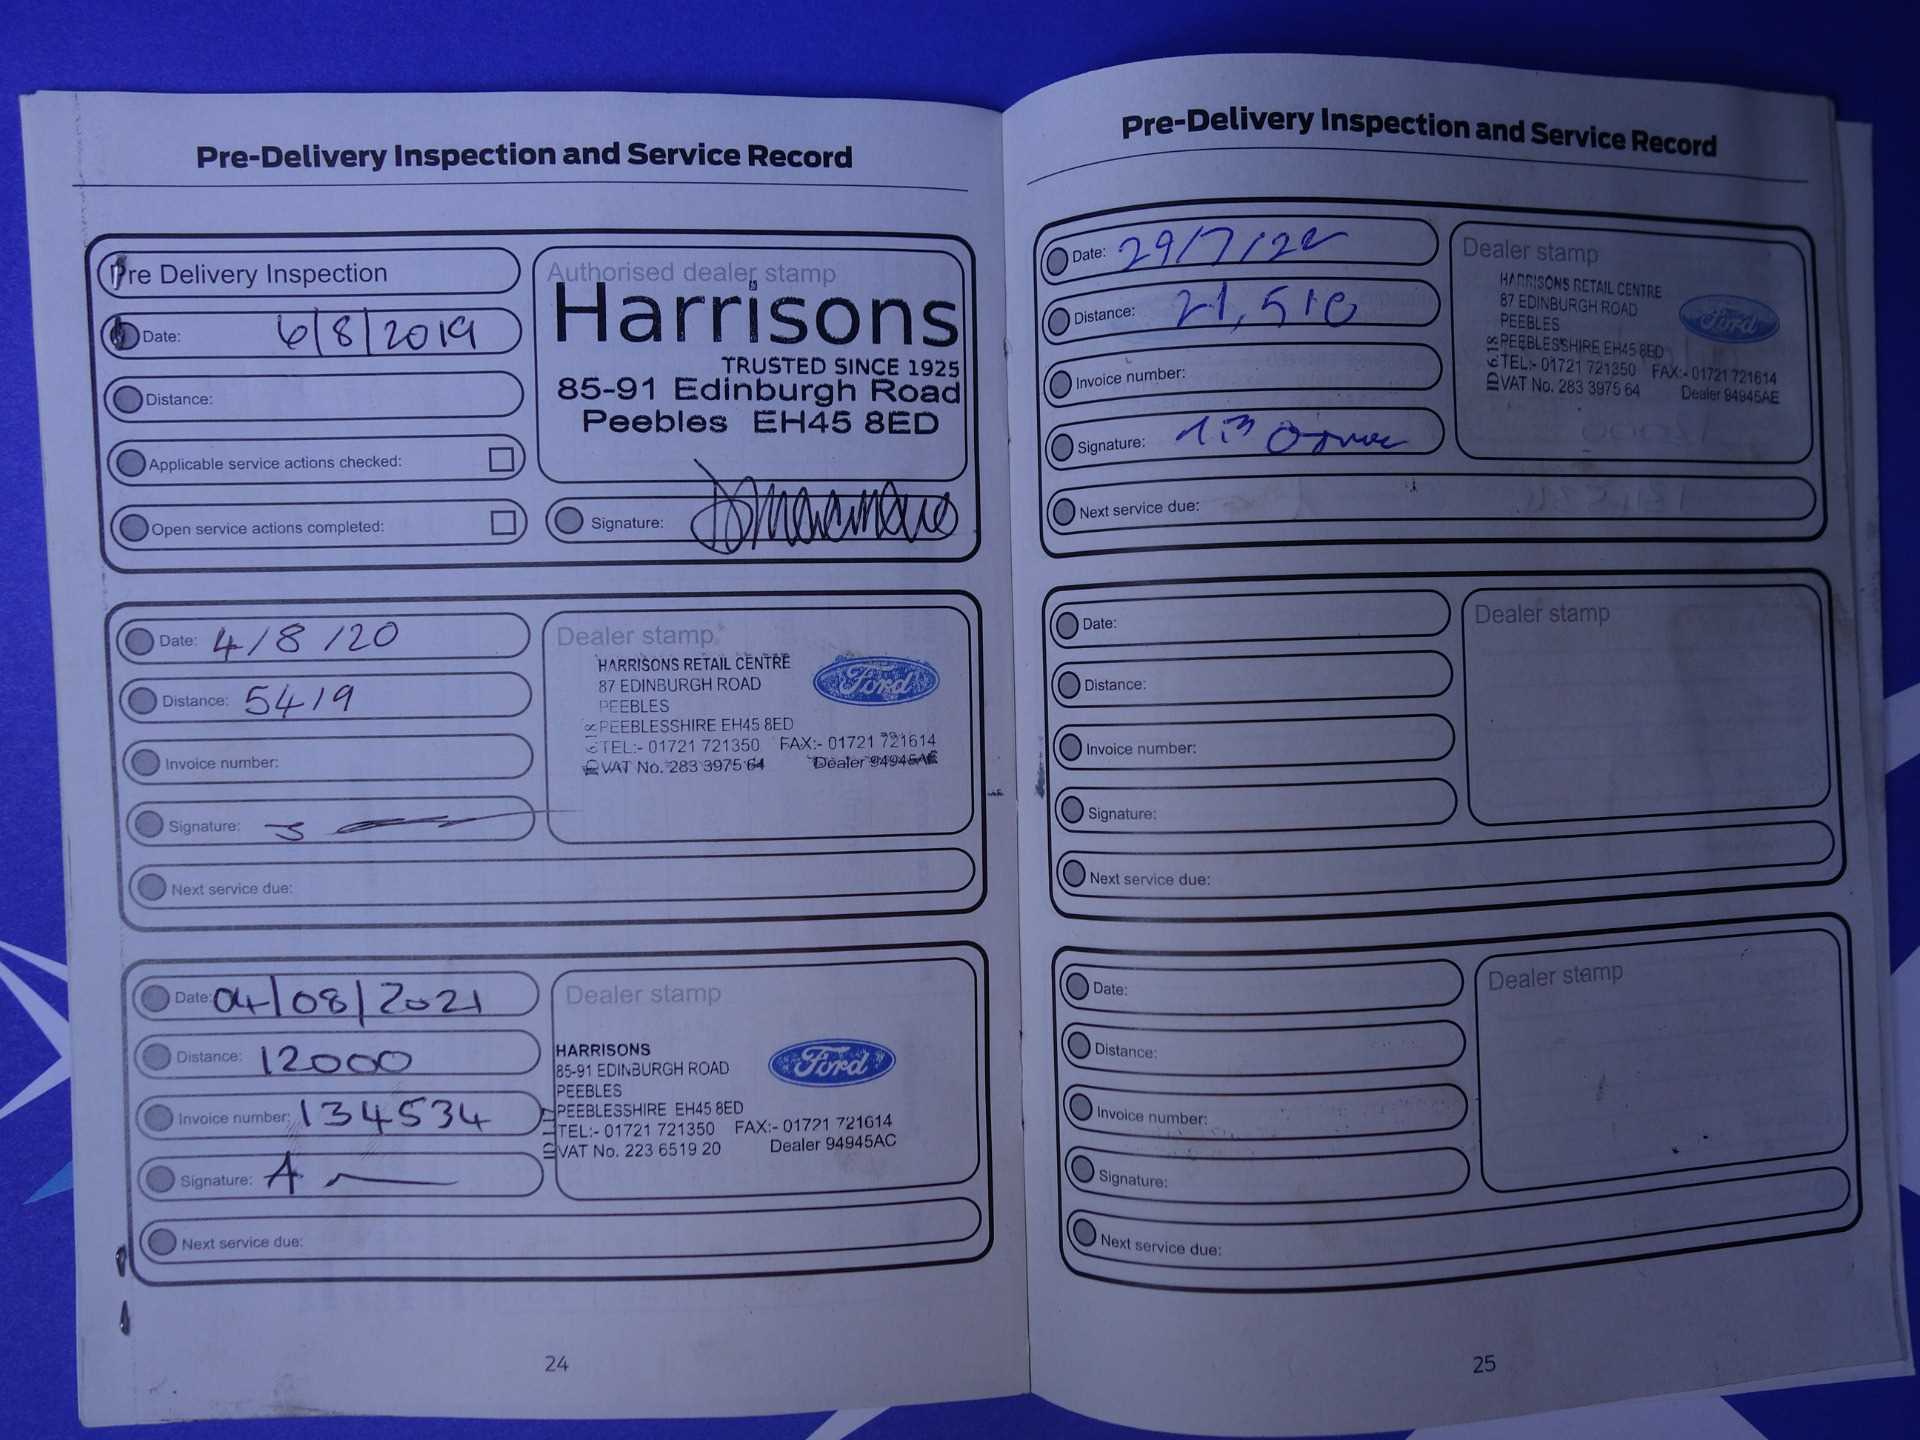 Pre-Delivery Inspection and Service Record
Pre Delivery Inspection
Date: 6/8/2019
Distance:
Applicable service actions checked:
Open service actions completed:
Authorised dealer stamp
Harrisons
TRUSTED SINCE 1925
85-91 Edinburgh Road
Peebles EH45 8ED
Signature:
Date: 4/8/20
Distance: 5419
Invoice number:
Signature:
Next service due:
Dealer stamp
HARRISONS RETAIL CENTRE
87 EDINBURGH ROAD
PEEBLES
PEEBLESSHIRE EH45 8ED
TEL:- 01721 721350 FAX:- 01721 721614
VAT No. 283 3975 64 Dealer 94945AE
Ford
Date: 04/08/2021
Distance: 12000
Invoice number: 134534
Signature: A
Next service due:
Dealer stamp
HARRISONS
85-91 EDINBURGH ROAD
PEEBLES
PEEBLESSHIRE EH45 8ED
TEL:- 01721 721350 FAX:- 01721 721614
VAT No. 223 6519 20 Dealer 94945AC
Ford
24
Pre-Delivery Inspection and Service Record
Date: 29/7/22
Distance: 21,510
Invoice number:
Signature:
Next service due:
Dealer stamp
HARRISONS RETAIL CENTRE
87 EDINBURGH ROAD
PEEBLES
PEEBLESSHIRE EH45 8ED
TEL:- 01721 721350 FAX:- 01721 721614
VAT No. 283 3975 64 Dealer 94945AE
ID 618
Ford
Date:
Distance:
Invoice number:
Signature:
Next service due:
Dealer stamp
Date:
Distance:
Invoice number:
Signature:
Next service due:
Dealer stamp
25